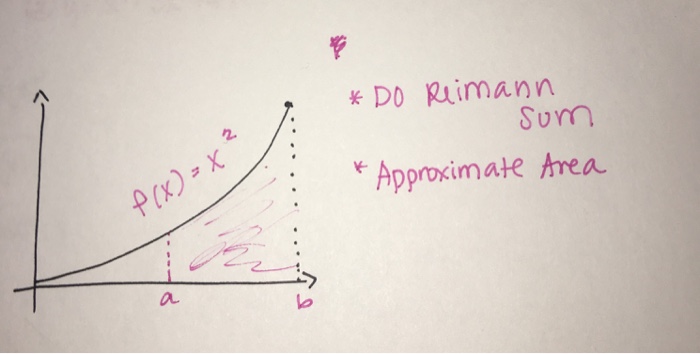 * DO Reimann
Sum
* Approximate Area
f(x) = x²
a
b